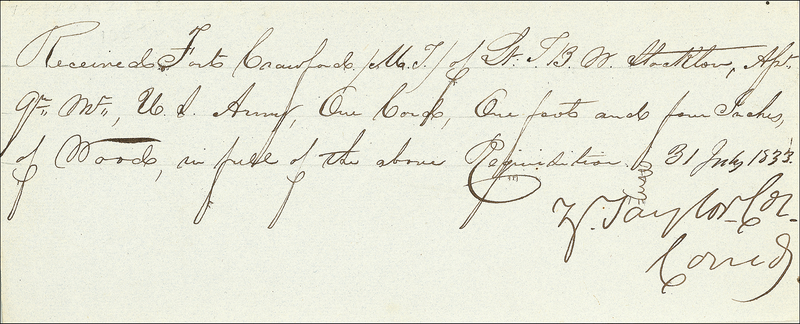 Received, Fort Crawford, (M. T.) of Lt. T. B. W. Stockton, Asst.
Qr. Mr., U. S. Army, One Cord, One foot and four Inches,
of Wood, in full of the above Requisition 31 July 1833.
Z. Taylor Col.
Comd